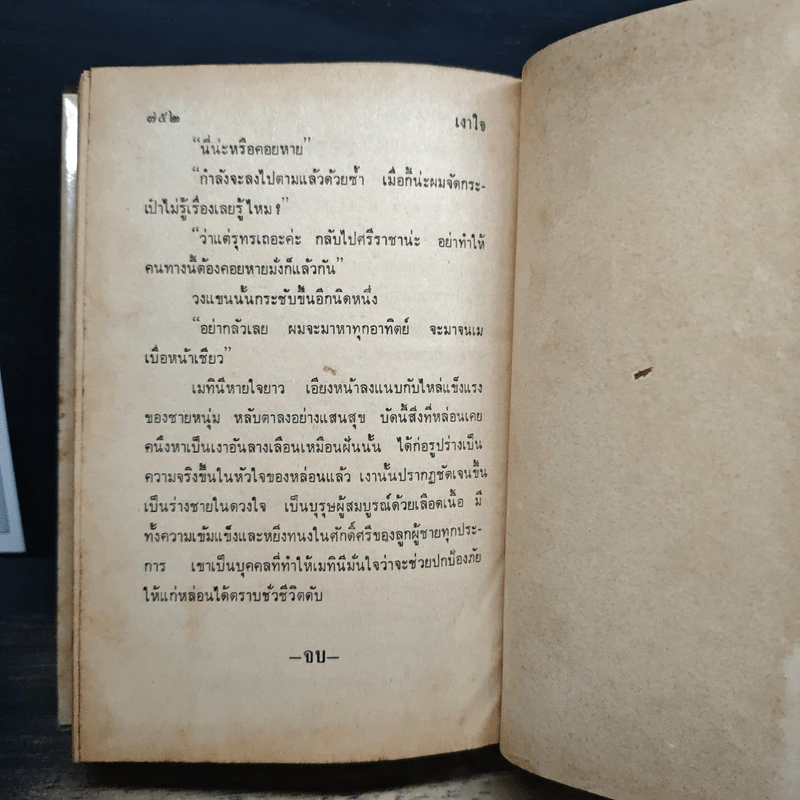 ๗๕๒
เงาใจ
“นี่น่ะหรือคอยหาย”
“กำลังจะลงไปตามแล้วด้วยซ้ำ เมื่อกี้น่ะผมจัดกระ-
เป๋าไม่รู้เรื่องเลยรู้ไหม?”
“ว่าแต่รุทรเถอะค่ะ กลับไปศรีราชาน่ะ อย่าทำให้
คนทางนี้ต้องคอยหายมั่งก็แล้วกัน”
วงแขนนั้นกระชับขึ้นอีกนิดหนึ่ง
“อย่ากลัวเลย ผมจะมาหาทุกอาทิตย์ จะมาจนเม
เบื่อหน้าเชียว”
เมทินีหายใจยาว เอียงหน้าลงแนบกับไหล่แข็งแรง
ของชายหนุ่ม หลับตาลงอย่างแสนสุข บัดนี้สิ่งที่หล่อนเคย
คนึงหาเป็นเงาอันลางเลือนเหมือนฝันนั้น ได้ก่อรูปร่างเป็น
ความจริงขึ้นในหัวใจของหล่อนแล้ว เงานั้นปรากฏชัดเจนขึ้น
เป็นร่างชายในดวงใจ เป็นบุรุษผู้สมบูรณ์ด้วยเลือดเนื้อ มี
ทั้งความเข้มแข็งและหยิ่งทนงในศักดิ์ศรีของลูกผู้ชายทุกประ-
การ เขาเป็นบุคคลที่ทำให้เมทินีมั่นใจว่าจะช่วยปกป้องภัย
ให้แก่หล่อนได้ตราบชั่วชีวิตดับ
—จบ—